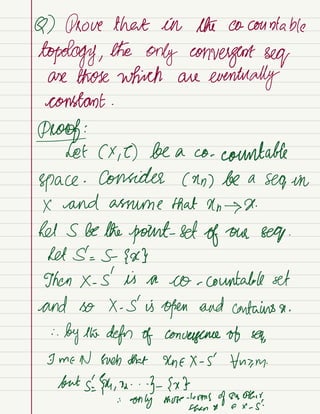 Q) Prove that in the co-countable
topology, the only convergent seq
are those which are eventually
constant.
Proof:
Let (X,τ) be a co-countable
space. Consider (xn) be a seq in
X and assume that xn → x.
Let S be the point-set of our seq.
Let S' = S - {x}
Then X-S' is a co-countable set
and so X-S' is open and contains x.
∴ by the defn of convergence of seq,
∃ m∈N such that xn∈ X-S' ∀n≥m.
but S'= {x1, x2 ...} - {x}
∴ only
than x X-S'.